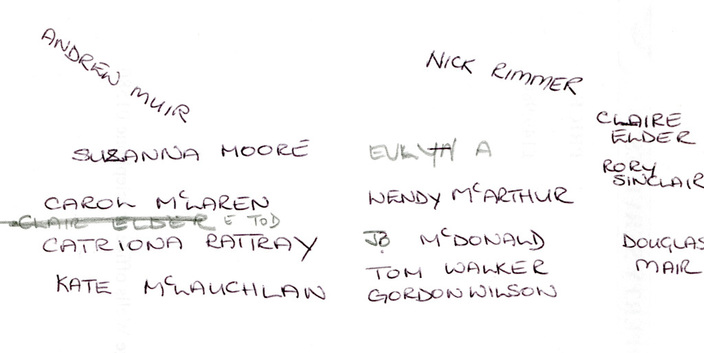 ANDREW MUIR
NICK RIMMER
CLAIRE
ELDER
SUZANNA MOORE
A
RORY
SINCLAIR
CAROL McLAREN
WENDY McARTHUR
CLAIR ELDER E TOD
CATRIONA RATTRAY
JO McDONALD
DOUGLAS
MAIR
KATE McLAUCHLAN
TOM WALKER
GORDON WILSON